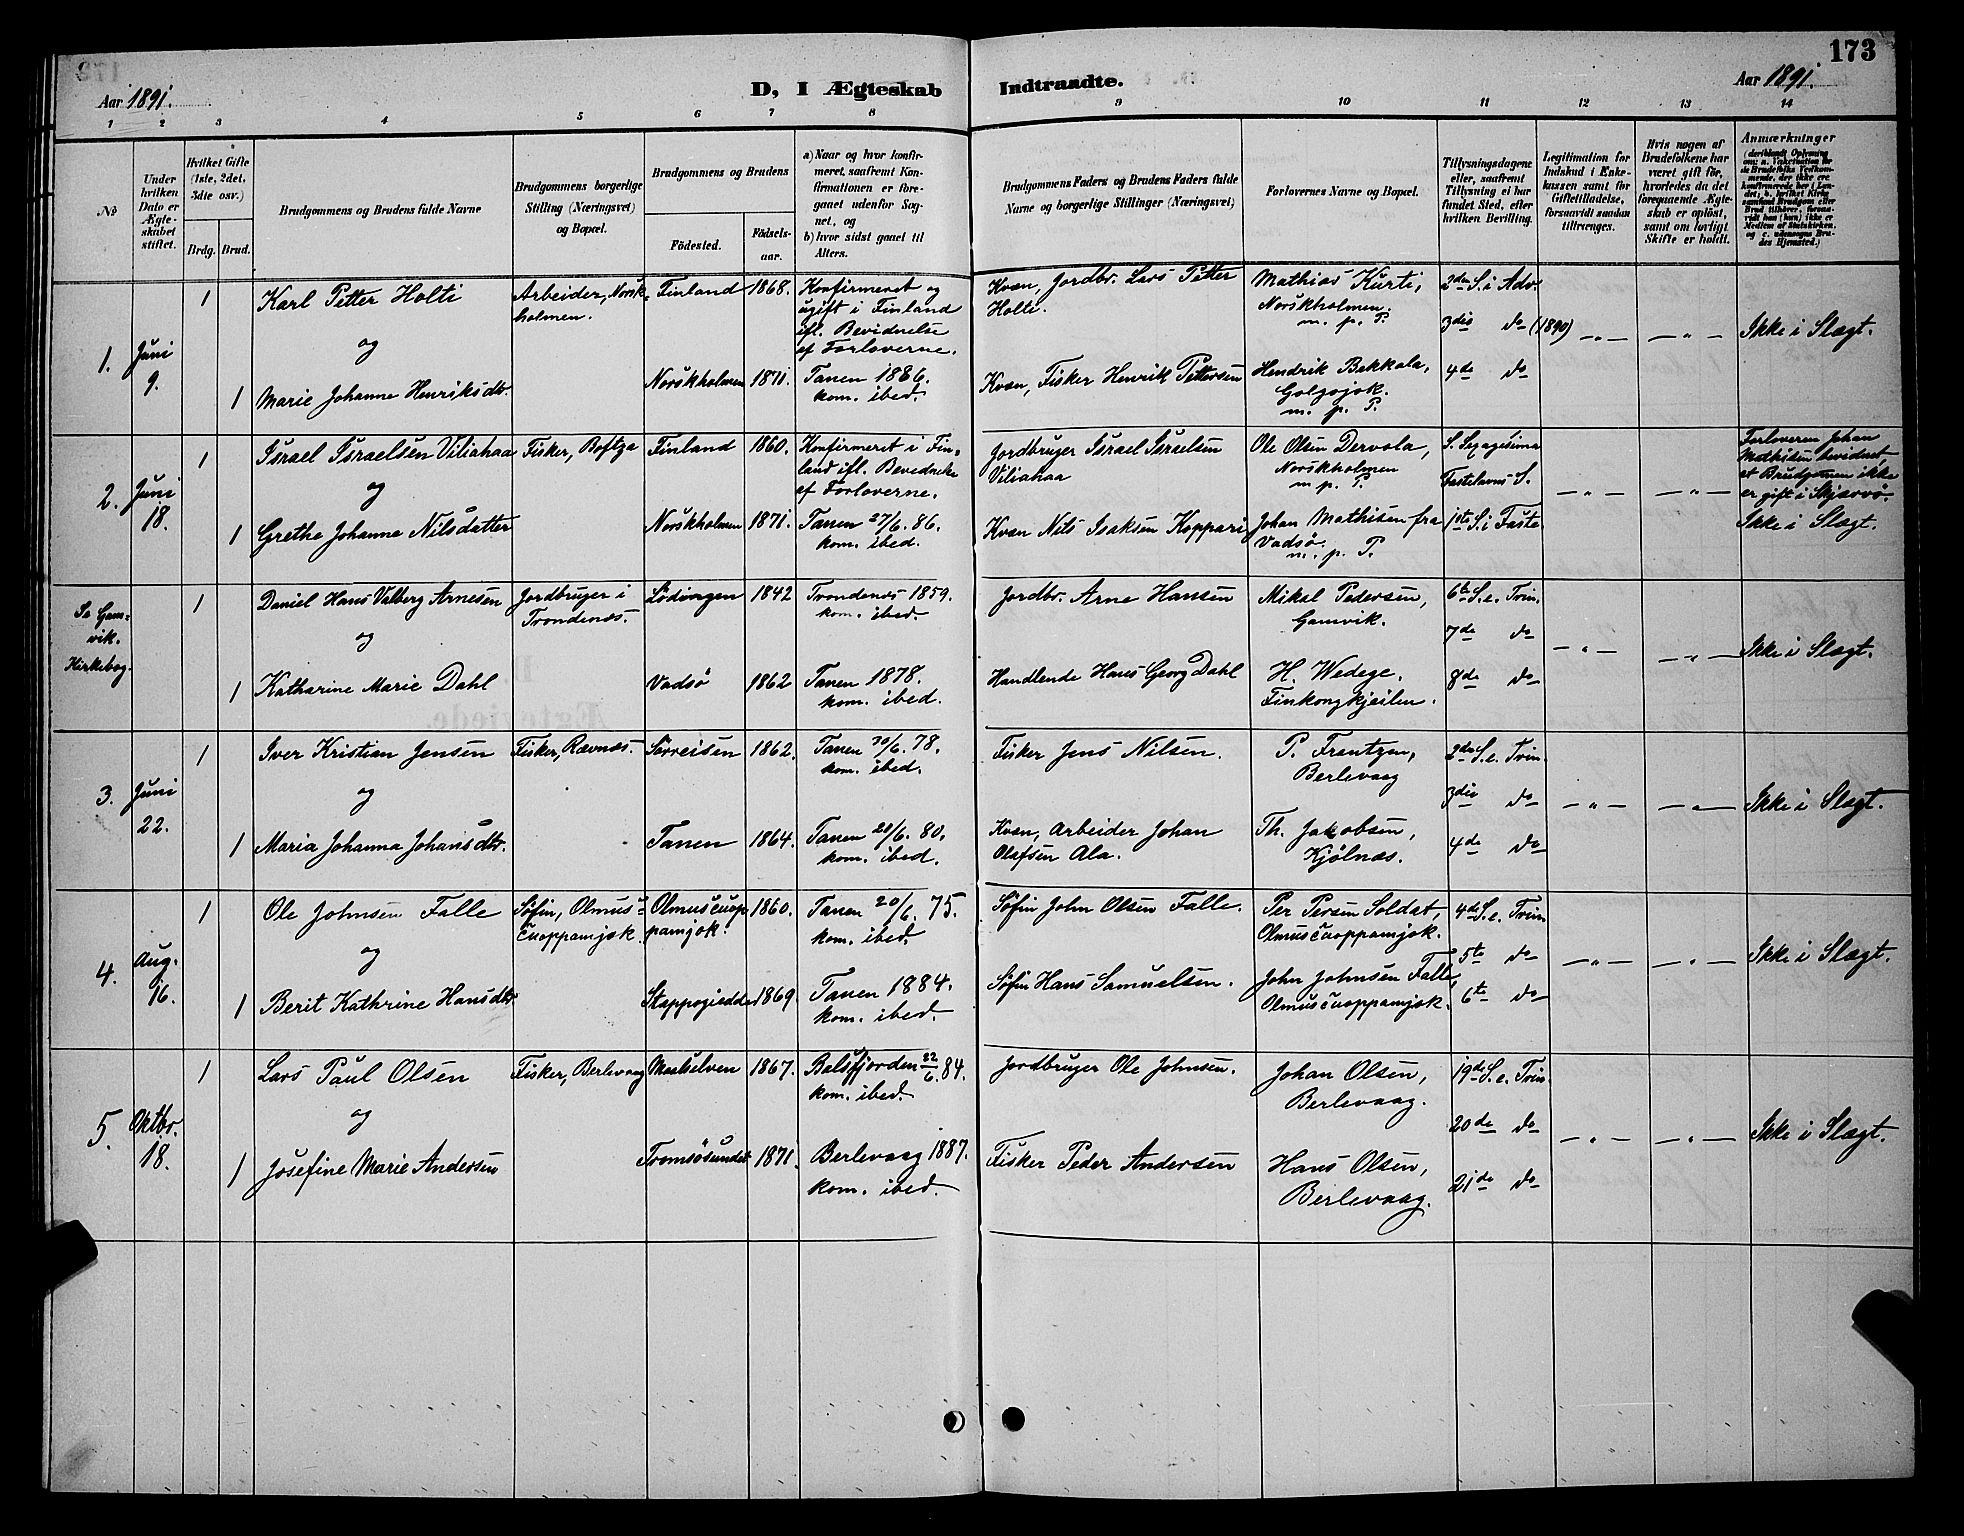 173
Aar 1891.
D, I Ægteskab Indtraadte.
Aar 1891.
1 2 3 4 5 6 7 8 9 10 11 12 13 14
No
Under hvilken Dato er Ægteskabet stiftet.
Hvilket Gifte (1ste, 2det, 3die osv.)
Brdg. Brud.
Brudgommens og Brudens fulde Navne
Brudgommens borgerlige Stilling (Næringsvei) og Bopæl.
Brudgommens og Brudens
Födested.
Födselsaar.
a) Naar og hvor konfirmeret, saafremt Konfirmationen er foregaaet udenfor Sognet, og
b) hvor sidst gaaet til Alters.
Brudgommens Faders og Brudens Faders fulde Navne og borgerlige Stillinger (Næringsvei)
Forlovernes Navne og Bopæl.
Tillysningsdagene eller, saafremt Tillysning ei har fundet Sted, efter hvilken Bevilling.
Legitimation for Indskud i Enkekassen samt for Giftetilladelse, forsaavidt saadan tiltrænges.
Hvis nogen af Brudefolkene har været gift för, hvorledes da det foregaaende Ægteskab er oplöst, samt om lovligt Skifte er holdt.
Anmærkninger
(deriblandt Oplysning om: a. Vaksination for de Brudefolks Vedkommende, der ikke ere konfirmerede her i Landet, b. hvilket Kirkesamfund Brudgom eller Brud tilhører, forsaavidt han (hun) ikke er Medlem af Statskirken, og c. udensogns Brudes Hjemsted.)
1. Juni 9.
1
Karl Petter Holti
Arbeider, Norskholmen.
Finland 1868.
Konfirmeret og ugift i Finland ifl. Bevidnelse af Forloverne.
Kvæn, Jordbr. Lars Petter Holti.
Mathias Kurti, Norskholmen. m. p. P.
2den S. i Adv.
3die do (1890)
og
1 Marie Johanne Henriksdtr.
Norskholmen 1871.
Tanen 1886. kom. ibed.
Kvæn, Fisker Henrik Pettersen
Hendrik Bekkala, Golgojok. m. p. P.
4de do
— " — — " — Ikke i Slægt.
2. Juni 18.
1
Israel Israelsen Viliahaa
Fisker, Boftza
Finland 1860.
Konfirmeret i Finland ifl. Bevidnelse af Forloverne.
Jordbruger Israel Israelsen Viliahaa
Ole Olsen Dervola, Norskholmen m. p. P.
S. Sexagesima
Fastelavns S.
Forloveren Johan Mathisen bevidnet, at Brudgomen ikke er gift i Skjærvö.
og
1 Grethe Johanna Nilsdatter
Norskholmen 1871.
Tanen 27/6. 86. kom. ibed.
Kvæn Nils Isaksen Koppari
Johan Mathisen fra Vadsø. m. p. P.
1ste S. i Faste
— " — — " — Ikke i Slægt.
Se Gamvik. Kirkebog.
1
Daniel Hans Valberg Arnesen
Jordbruger i Trondenæs.
Lödingen 1842
Trondenæs 1859. kom. ibed.
Jordbr. Arne Hansen
Mikal Pedersen, Gamvik.
6te S. e. Trin.
7de do
og
1 Katharine Marie Dahl
Vadsö 1862
Tanen 1878. kom. ibed.
Handlende Hans Georg Dahl
H. Wedege, Finkongkjeilen.
8de do
— " — — " — Ikke i Slægt.
3. Juni 22.
1
Iver Kristian Jensen
Fisker, Rævnæs.
Sörreisen 1862.
Tanen 30/6. 78. kom. ibed.
Fisker Jens Nilsen.
P. Frantzen, Berlevaag
2den S. e. Trin.
3die do
og
1 Maria Johanna Johansdtr.
Tanen 1864.
Tanen 20/6. 80. kom. ibed.
Kvæn, Arbeider Johan Olafsen Ala.
Th. Jakobsen, Kjölnæs.
4de do
— " — — " — Ikke i Slægt.
4. Aug. 16.
1
Ole Johnsen Falle
Søfin, Olmuščuoppamjok.
Olmusčuoppamjok. 1860.
Tanen 20/6. 75. kom. ibed.
Søfin John Olsen Falle.
Per Persen Soldat, Olmusčuoppamjok.
4de S. e. Trin
5te do
og
1 Berit Kathrine Hansdtr.
Stappogiedde 1869.
Tanen 1884. kom. ibed.
Søfin Hans Samuelsen.
John Johnsen Falle, Olmusčuoppamjok.
6te do
— " — — " — Ikke i Slægt.
5. Oktbr. 18.
1
Lars Paul Olsen
Fisker, Berlevaag
Maalselven 1867.
Balsfjorden 22/6. 84. kom. ibed.
Jordbruger Ole Johnsen.
Johan Olsen, Berlevaag.
19de S. e. Trin.
20de do
og
1 Josefine Marie Andersen
Tromsösundet 1871.
Berlevaag 1887. kom. ibed.
Fisker Peder Andersen
Hans Olsen, Berlevaag.
21de do
— " — — " — Ikke i Slægt.